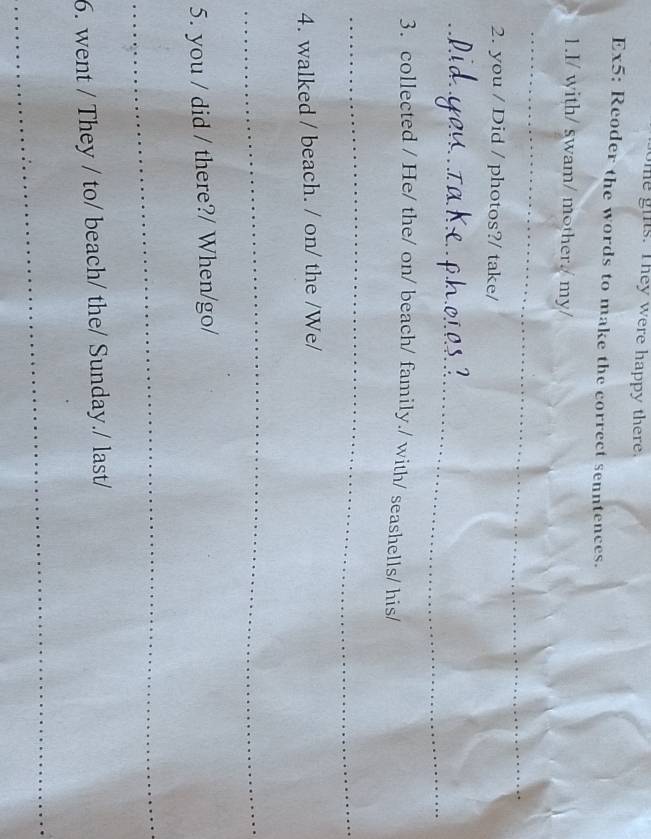 some gifts. They were happy there.
Ex5: Reoder the words to make the correct senntences.
1.I/ with/ swam/ mother./ my/
2. you / Did / photos?/ take/
Did you Take photos?
3. collected / He/ the/ on/ beach/ family./ with/ seashells/ his/
4. walked / beach. / on/ the /We/
5. you / did / there?/ When/go/
6. went / They / to/ beach/ the/ Sunday./ last/